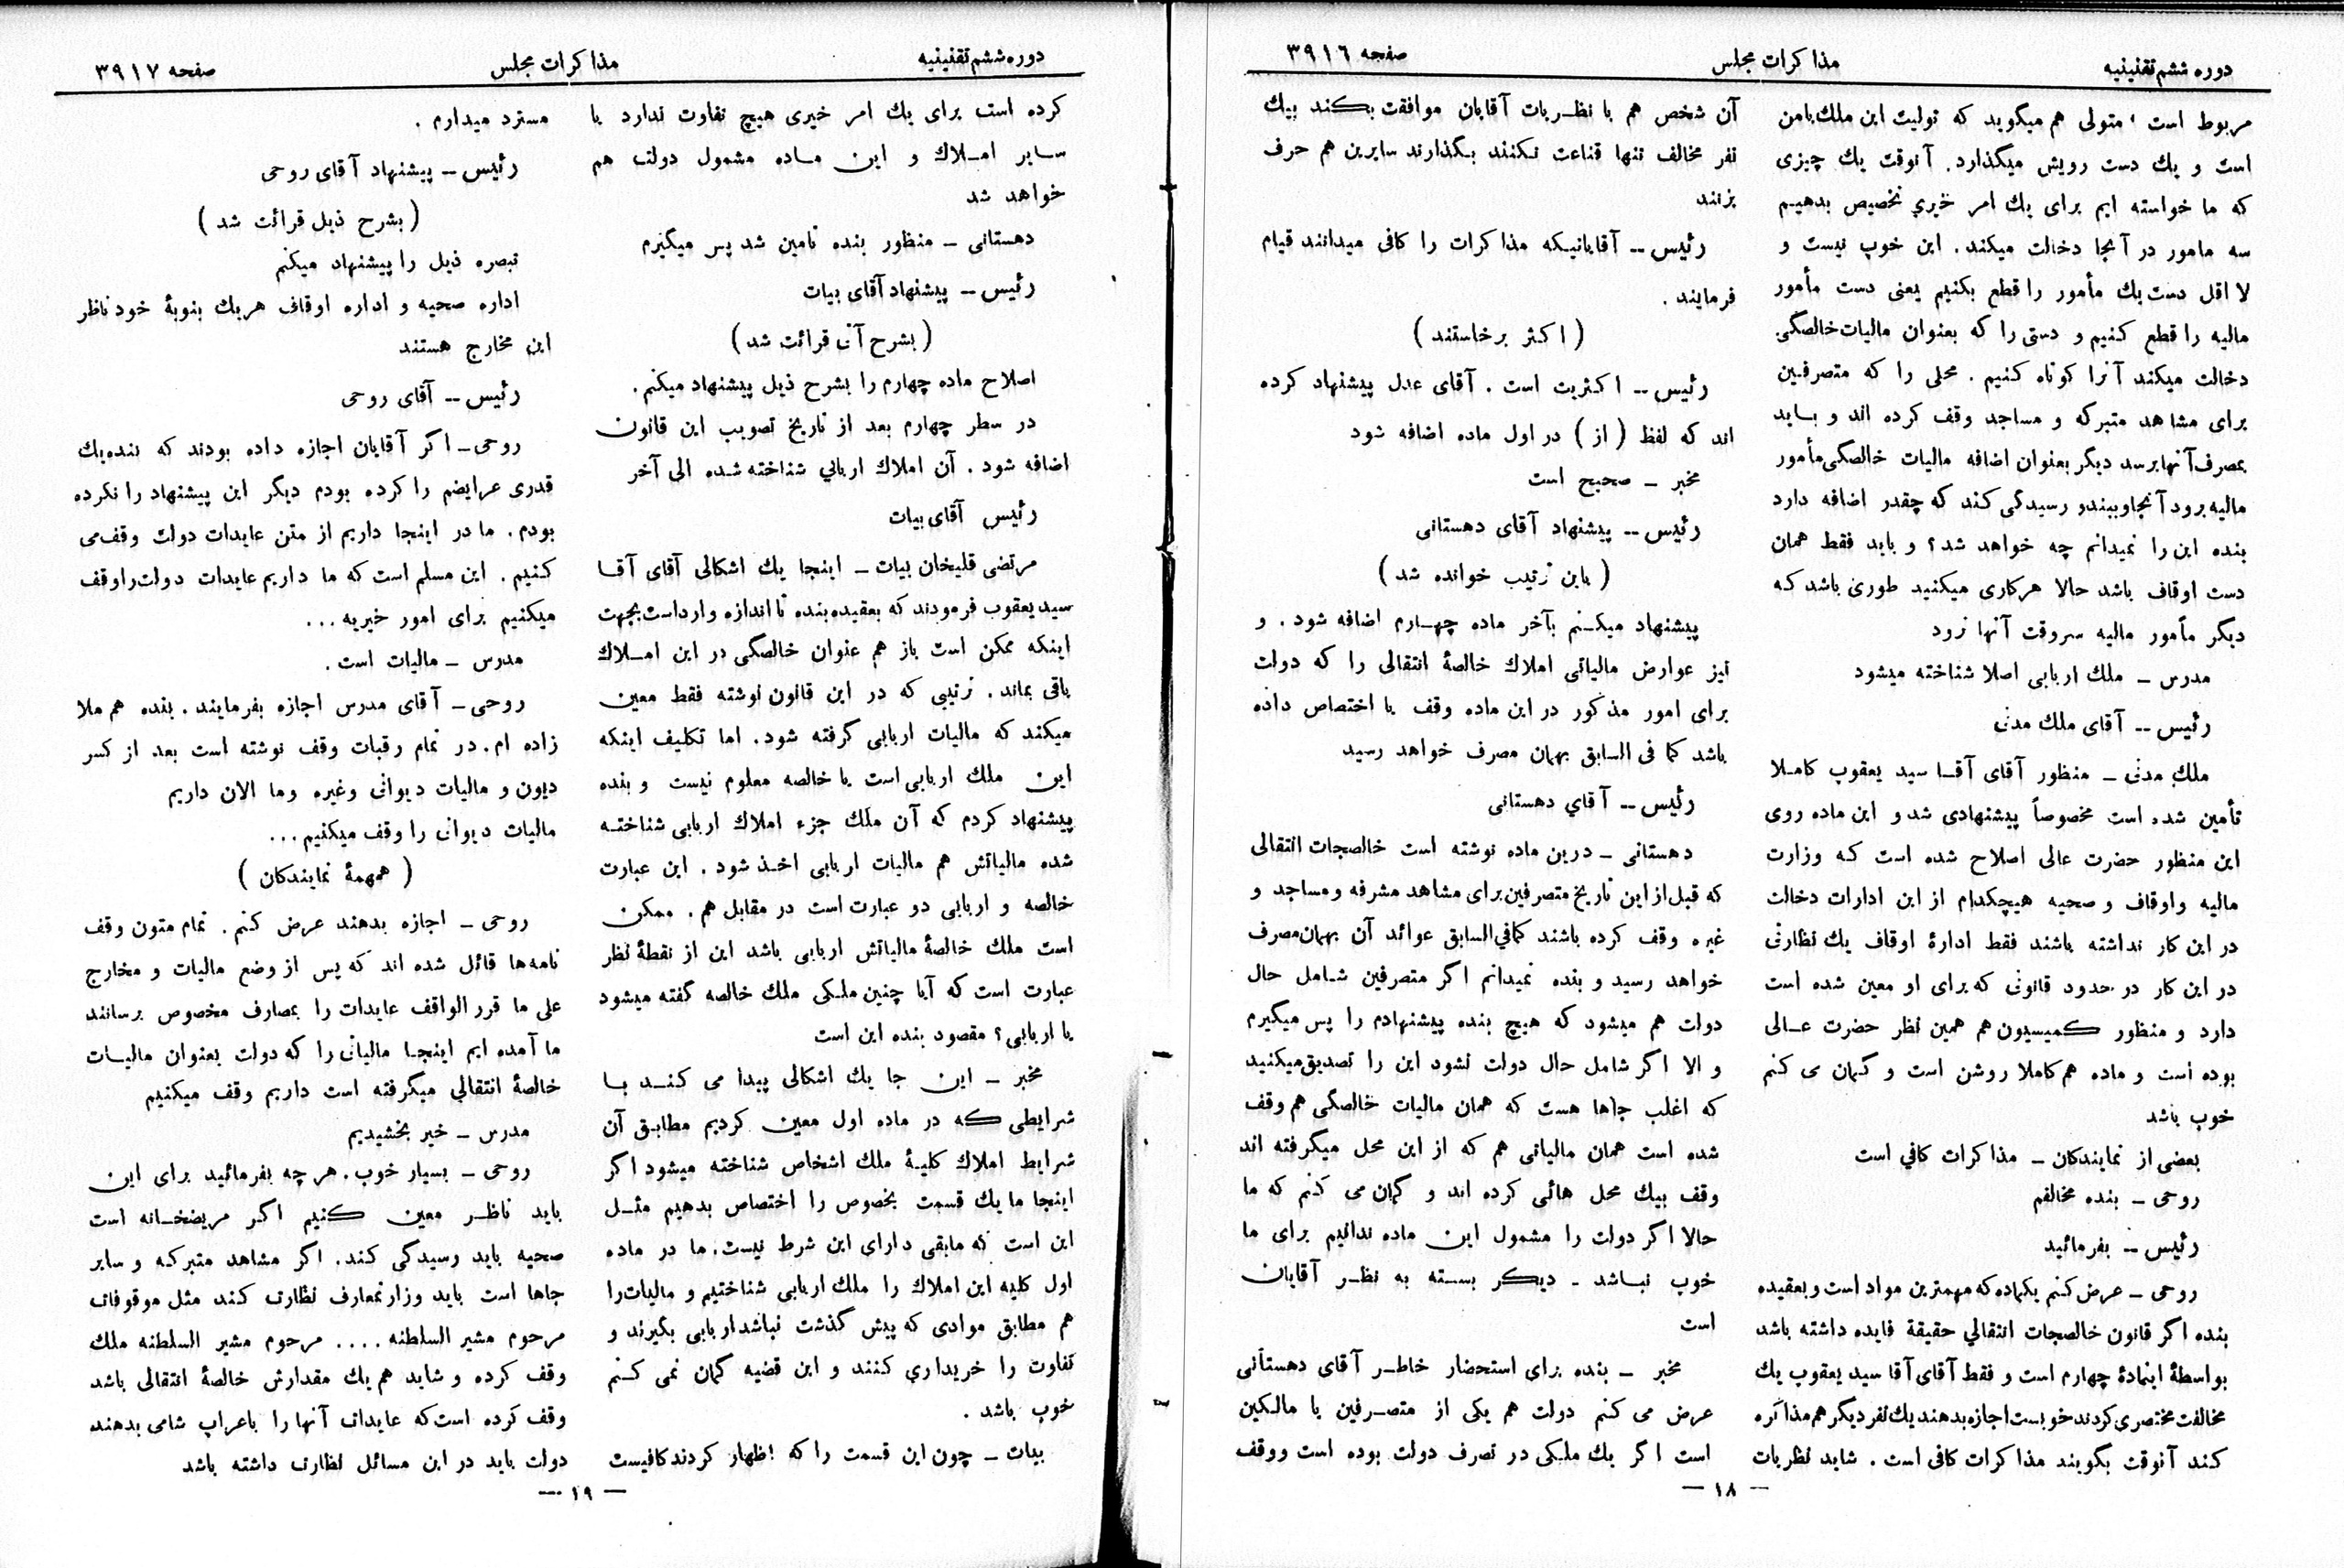 دوره ششم تقنینیه
مذاکرات مجلس
صفحه ۳۹۱۶
مربوط است، متولی هم میگوید که تولیت این ملك بامن
است و یك دست رویش میگذارد. آنوقت یك چیزی
که ما خواسته ایم برای یك امر خیري تخصیص بدهیم
سه مامور در آنجا دخالت میکند. این خوب نیست و
لا اقل دست یك مأمور را قطع بکنیم یعنی دست مأمور
مالیه را قطع کنیم و دستی را که بعنوان مالیات خالصگی
دخالت میکند آنرا کوتاه کنیم. محلی را که متصرفین
برای مشاهد متبرکه و مساجد وقف کرده اند و باید
بمصرف آنها برسد دیگر بعنوان اضافه مالیات خالصگی مأمور
مالیه برود آنجا و ببیند و رسیدگی کند که چقدر اضافه دارد
بنده این را نمیدانم چه خواهد شد؟ و باید فقط همان
دست اوقاف باشد حالا هرکاری میکنید طوری باشد که
دیگر مأمور مالیه سروقت آنها نرود
مدرس – ملك اربابی اصلا شناخته میشود
رئیس -- آقای ملك مدنی
ملك مدنی – منظور آقای آقا سید یعقوب کاملا
تأمین شده است مخصوصاً پیشنهادی شد و این ماده روی
این منظور حضرت عالی اصلاح شده است که وزارت
مالیه و اوقاف و صحیه هیچکدام از این ادارات دخالت
در این کار نداشته باشند فقط ادارۀ اوقاف یك نظارتی
در این کار در حدود قانونی که برای او معین شده است
دارد و منظور کمیسیون هم همین نظر حضرت عالی
بوده است و ماده هم کاملا روشن است و گمان می کنم
خوب باشد
بعضی از نمایندکان – مذاکرات کافي است
روحی – بنده مخالفم
رئیس -- بفرمائید
روحی – عرض کنم یکماده که مهمترین مواد است و بعقیده
بنده اگر قانون خالصجات انتقالي حقیقة فایده داشته باشد
بواسطۀ اینمادۀ چهارم است و فقط آقای آقا سید یعقوب یك
مخالفت مختصری کردند خوبست اجازه بدهند یك نفر دیگر هم مذاکره
کند آنوقت بگویند مذاکرات کافی است. شاید نظریات
آن شخص هم با نظریات آقایان موافقت بکند بیك
نفر مخالف تنها قناعت نکنند بگذارند سایرین هم حرف
بزنند
رئیس -- آقایانیکه مذاکرات را کافی میدانند قیام
فرمایند.
(اکثر برخاستند)
رئیس -- اکثریت است. آقای عدل پیشنهاد کرده
اند که لفظ (از) در اول ماده اضافه شود
مخبر – صحیح است
رئیس -- پیشنهاد آقای دهستانی
(باین ترتیب خوانده شد)
پیشنهاد میکنم بآخر ماده چهارم اضافه شود. و
نیز عوارض مالیاتی املاك خالصۀ انتقالی را که دولت
برای امور مذکور در این ماده وقف یا اختصاص داده
باشد کما فی السابق بهمان مصرف خواهد رسید
رئیس -- آقاي دهستانی
دهستانی – درین ماده نوشته است خالصجات انتقالی
که قبل از این تاریخ متصرفین برای مشاهد مشرفه و مساجد و
غیره وقف کرده باشند کمافي السابق عوائد آن بهمان مصرف
خواهد رسید و بنده نمیدانم اگر متصرفین شامل حال
دولت هم میشود که هیچ بنده پیشنهادم را پس میگیرم
و الا اگر شامل حال دولت نشود این را تصدیق میکنید
که اغلب جاها هست که همان مالیات خالصگی هم وقف
شده است همان مالیاتی هم که از این محل میگرفته اند
وقف بیك محل هائی کرده اند و گمان می کنم که ما
حالا اگر دولت را مشمول این ماده ندانیم برای ما
خوب نباشد - دیگر بسته به نظر آقایان
است
مخبر – بنده برای استحضار خاطر آقای دهستانی
عرض می کنم دولت هم یکی از متصرفین یا مالکین
است اگر یك ملکی در تصرف دولت بوده است ووقف
— ۱۸ —
دوره ششم تقنینیه
مذاکرات مجلس
صفحه ۳۹۱۷
کرده است برای یك امر خیری هیچ تفاوت ندارد با
سایر املاك و این ماده مشمول دولت هم
خواهد شد
دهستانی – منظور بنده تامین شد پس میگیرم
رئیس -- پیشنهاد آقای بیات
(بشرح آتی قرائت شد)
اصلاح ماده چهارم را بشرح ذیل پیشنهاد میکنم.
در سطر چهارم بعد از تاریخ تصویب این قانون
اضافه شود. آن املاك اربابي شناخته شده الی آخر
رئیس آقای بیات
مرتضی قلیخان بیات – اینجا یك اشکالی آقای آقا
سید یعقوب فرمودند که بعقیده بنده تا اندازه وارداست بجهت
اینکه ممکن است باز هم عنوان خالصگی در این املاك
باقی بماند. ترتیبی که در این قانون نوشته فقط معین
میکند که مالیات اربابی گرفته شود. اما تکلیف اینکه
این ملك اربابی است یا خالصه معلوم نیست و بنده
پیشنهاد کردم که آن ملك جزء املاك اربابی شناخته
شده مالیاتش هم مالیات اربابی اخذ شود. این عبارت
خالصه و اربابی دو عبارت است در مقابل هم. ممکن
است ملك خالصۀ مالیاتش اربابی باشد این از نقطۀ نظر
عبارت است که آیا چنین ملکی ملك خالصه گفته میشود
یا اربابی؟ مقصود بنده این است
مخبر – این جا یك اشکالی پیدا می کند با
شرایطی که در ماده اول معین کردیم مطابق آن
شرایط املاك کلیۀ ملك اشخاص شناخته میشود اگر
اینجا ما یك قسمت بخصوص را اختصاص بدهیم مثل
این است که مابقی دارای این شرط نیست. ما در ماده
اول کلیه این املاك را ملك اربابی شناختیم و مالیات را
هم مطابق موادی که پیش گذشت نباشد اربابی بگیرند و
تفاوت را خریداري کنند و این قضیه گمان نمی کنم
خوب باشد.
بیات – چون این قسمت را که اظهار کردند کافیست
مسترد میدارم.
رئیس -- پیشنهاد آقای روحی
(بشرح ذیل قرائت شد)
تبصره ذیل را پیشنهاد میکنم
اداره صحیه و اداره اوقاف هریك بنوبۀ خود ناظر
این مخارج هستند
رئیس -- آقای روحی
روحی – اگر آقایان اجازه داده بودند که بنده یك
قدری عرایضم را کرده بودم دیگر این پیشنهاد را نکرده
بودم. ما در اینجا داریم از متن عایدات دولت وقف می
کنیم. این مسلم است که ما داریم عایدات دولت را وقف
میکنیم برای امور خیریه...
مدرس – مالیات است.
روحی – آقای مدرس اجازه بفرمایند. بنده هم ملا
زاده ام. در تمام رقبات وقف نوشته است بعد از کسر
دیون و مالیات دیوانی وغیره وما الان داریم
مالیات دیوانی را وقف میکنیم...
(همهمۀ نمایندکان)
روحی – اجازه بدهند عرض کنم. تمام متون وقف
نامه ها قائل شده اند که پس از وضع مالیات و مخارج
علی ما قرر الواقف عایدات را بمصارف مخصوص برسانند
ما آمده ایم اینجا مالیاتی را که دولت بعنوان مالیات
خالصۀ انتقالي میگرفته است داریم وقف میکنیم
مدرس – خیر بخشیدیم
روحی – بسیار خوب. هر چه بفرمائید برای این
باید ناظر معین کنیم اگر مریضخانه است
صحیه باید رسیدگی کند. اگر مشاهد متبرکه و سایر
جاها است باید وزارتمعارف نظارت کند مثل موقوفات
مرحوم مشیر السلطنه .... مرحوم مشیر السلطنه ملك
وقف کرده و شاید هم یك مقدارش خالصۀ انتقالی باشد
وقف کرده است که عایدات آنها را باعراب شامی بدهند
دولت باید در این مسائل نظارت داشته باشد
— ۱۹ —